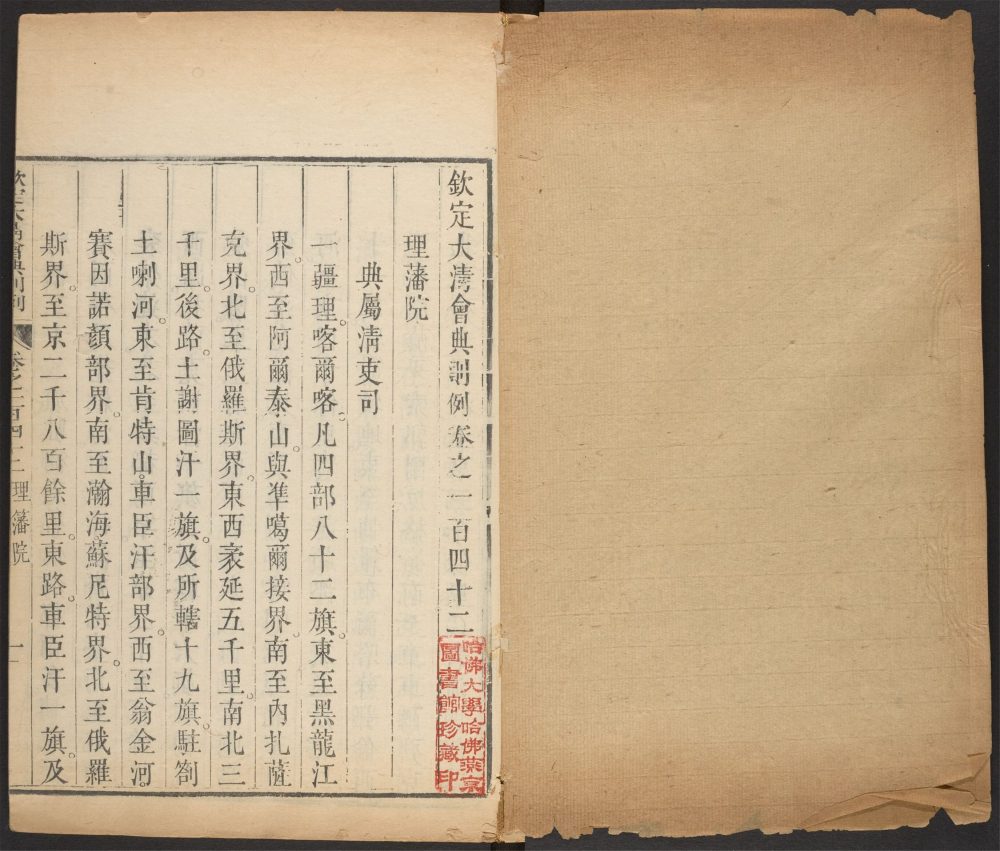 欽定大清會典則例卷之一百四十二
哈佛大學哈佛燕京
圖書館珍藏印
理藩院
典屬清吏司
一疆理。喀爾喀。凡四部八十二旗。東至黑龍江
界。西至阿爾泰山。與準噶爾接界。南至內扎薩
克界。北至俄羅斯界。東西袤延五千里。南北三
千里。後路。土謝圖汗一旗。及所轄十九旗。駐劄
土喇河。東至肯特山。車臣汗部界。西至翁金河。
賽因諾顏部界。南至瀚海蘇尼特界。北至俄羅
斯界。至京二千八百餘里。東路。車臣汗一旗。及
欽定大清會典則例 卷之一百四十二 理藩院 一